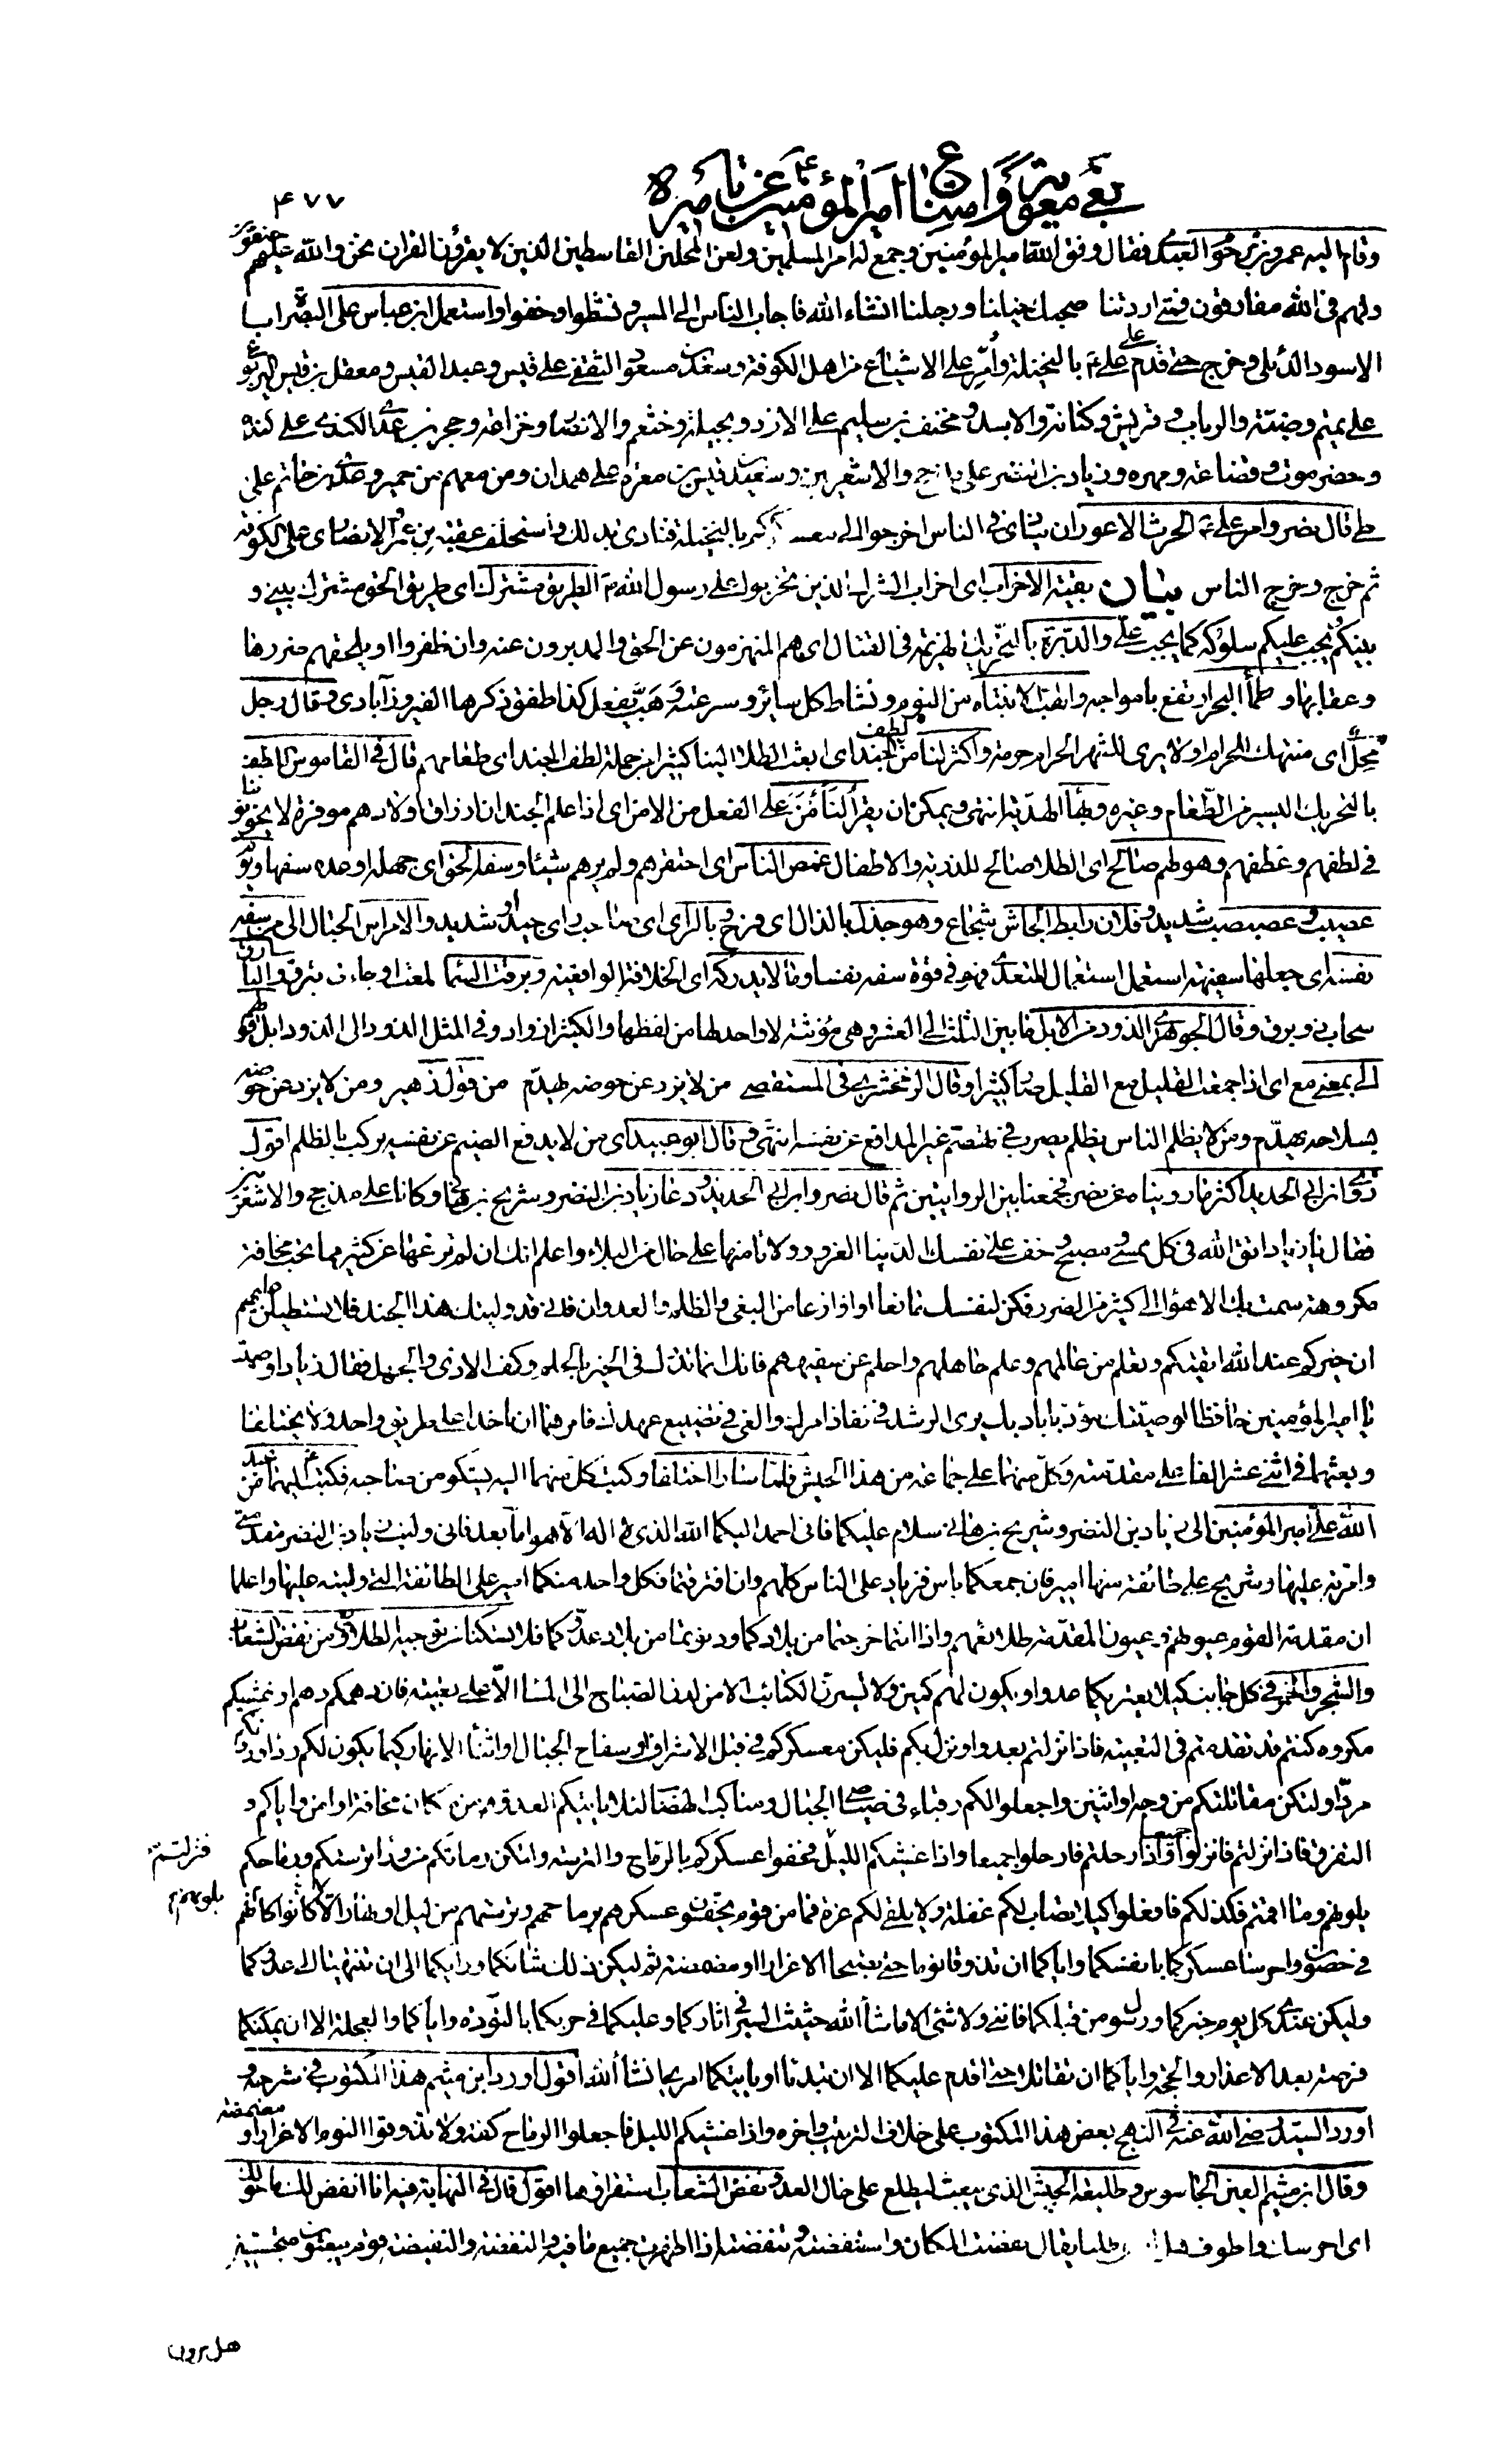 بغى معوية وامتناع امير المؤمنين عن تاميره
۴۷۷
وقام اليه عمرو بن مرجوم العبدى فقال وفق الله امير المؤمنين وجمع له امر المسلمين ولعن المحلين القاسطين الذين لا يقرؤن القران نحن والله عليهم حنقون
ولهم فى الله مفارقون فمتى اردتنا صحبك خيلنا ورجلنا انشاء الله فاجاب الناس الى المسير ونشطوا وخفوا واستعمل ابن عباس على البصرة ابا
الاسود الدئلى وخرج حتى قدم على على ع بالنخيلة وأمر على الاسباع من اهل الكوفة وسعد بن مسعود الثقفى على قيس وعبد القيس ومعقل بن قيس اليربوعى
على تميم وضبة والرباب وقريش وكنانة والاسد ومخنف بن سليم على الازد وبجيلة وخثعم والانصار وخزاعة وحجر بن عدى الكندى على كنده
وحضرموت وقضاعة ومهره وزياد بن النضر على مذحج والاشعريين وسعيد بن قيس بن مرة على همدان ومن معهم من حمير وعدى بن حاتم على
طى قال نصر وامر على ع الحرث الاعور ان ينادى فى الناس اخرجوا الى معسكركم بالنخيلة فنادى بذلك واستخلف عقبة بن عمرو الانصارى على الكوفة
ثم خرج وخرج الناس بيان بقية الاحزاب اى احزاب الشرك الذين تحزبوا على رسول الله ص الطريق مشترك اى طريق الحق مشترك بينى و
بينكم يجب عليكم سلوكه كما يجب على والدبرة بالتحريك الهزيمة فى القتال اى هم المنهزمون عن الحق والمدبرون عنه وان ظفروا او يلحقهم ضررها
وعقابها وطمأ البحر ارتفع بامواجه والهب الانتباه من النوم ونشاط كل سائر وسرعته وهب يفعل كذا طفق ذكرها الفيروزآبادى وقال رجل
محل اى منتهك للحرام او لا يرى للشهر الحرام حرمة واكثر لنا من لطف الجند اى ابعث الطلا الينا كثيرا من جملة لطف الجند اى طعامهم قال فى القاموس اللطف
بالتحريك اليسير من الطعام وغيره وبهأ الهدية انتهى ويمكن ان يقرأ لنأمن على الفعل من الامن اى اذا علم الجند ان ارزاق اولادهم موفرة لا يخونوننا
فى لطفهم وعطفهم وهو لهم صالح اى الطلا صالح للذرية والاطفال غمص الناس اى احتقرهم ولم يرهم شيئا وسفه الحق اى جهله او عده سفها ويوم
عصيب وعصبصب شديد وفلان رابط الجأش شجاع وهو جذل بالذال اى فرح وبالزاى اى صاحب راى جيد او شديد والامراس الحبال الى من سفه
نفسه اى جعلها سفيهة استعمل استعمال المتعدى فهو فى قوة سفه نفسا وما لا يدركه اى الخلافة الواقعية وبرقت السماء لمعت او جاءت ببرق والبارق
سحاب ذو برق وقال الجوهرى الذود من الابل ما بين الثلث الى العشر وهى مؤنثة لا واحد لها من لفظها والكثير اذواد وفى المثل الذود الى الذود ابل قولهم
الى بمعنى مع اى اذا جمعت القليل مع القليل صار كثيرا وقال الزمخشرى فى المستقصى من لا يزد عن حوضه يهدم من قول زهير ومن لا يزد عن حوضه
بسلاحه يهدم ومن لا يظلم الناس يظلم يضرب فى تهضم غير المدافع عن نفسه انتهى وقال ابو عبيد اى من لا يدفع الضيم عن نفسه يركب بالظلم اقول
روى ابن ابى الحديد اكثر ما روينا عن نصر فجمعنا بين الروايتين ثم قال نصر وابن ابى الحديد ودعا زياد بن النضر وشريح بن هانى وكانا على مذحج والاشعريين
فقال يا زياد اتق الله فى كل ممسى ومصبح وخف على نفسك الدنيا الغرور ولا تامنها على حال من البلاء واعلم انك ان لم تزع نفسك عن كثير مما يحب مخافة
مكروهة سمت بك الاهواء الى كثير من الضرر فكن لنفسك مانعا وازعا من البغى والظلم والعدوان فانى قد وليتك هذا الجند فلا تستطيلن عليهم
ان خيركم عند الله اتقيكم وتعلم من عالمهم وعلم جاهلهم واحلم عن سفيههم فانك انما تدرك الخير بالحلم وكف الاذى والجهل فقال زياد اوصيت
يا امير المؤمنين حافظا لوصيتك مؤدبا بادبك يرى الرشد فى نفاذ امرك والغى فى تضييع عهدك فامرهما ان ياخذا على طريق واحد ولا يختلفا
وبعثهما فى اثنى عشر الفا على مقدمته وكل منهما على جماعة من هذا الجيش فلما سارا اختلفا وكتب كل منهما اليه يشكو من صاحبه فكتب اليهما من عبد
الله على امير المؤمنين الى زياد بن النضر وشريح بن هانى سلام عليكما فانى احمد اليكما الله الذى لا اله الا هو اما بعد فانى وليت زياد بن النضر مقدمتى
وامرته عليها وشريح على طائفة منها امير فان جمعكما باس فزياد على الناس كلهم وان افترقتما فكل واحد منكما امير على الطائفة التى وليته عليها واعلما
ان مقدمة القوم عيونهم وعيون المقدمة طلائعهم واذا انتما خرجتما من بلادكما ودنوتما من بلاد عدوكما فلا تسكنا من توجيه الطلائع ومن نفض الشعاب
والشجر والخمر فى كل جانب كيلا يغتركما عدو او يكون لهم كمين ولا تسيرن الكتائب الا من لدن الصباح الى المساء الا على تعبية فان دهمكم دهم او غشيكم
مكروه كنتم قد تقدمتم فى التعبية فاذا نزلتم بعدو او نزل بكم فليكن معسكركم فى قبل الاشراف او سفاح الجبال او اثناء الانهار كيما يكون لكم ردءا ودونكم
مردا ولتكن مقاتلتكم من وجه او اثنين واجعلوا لكم رقباء فى صياصى الجبال ومناكب الهضاب لئلا ياتيكم العدو من مكان مخافة او امن واياكم و
التفرق فاذا نزلتم فانزلوا جميعا واذا رحلتم فارحلوا جميعا واذا غشيكم الليل فحفوا عسكركم بالرماح والترسة ولتكن رماتكم من وراء ترسكم ورماحكم
يلونهم وما اقمتم فكذلكم فافعلوا كيلا يصاب لكم غفلة ولا يلفى لكم غرة فما من قوم يحفون عسكرهم برماحهم وترستهم من ليل او نهار الا كانوا كانهم
فى حصون واحرسا عسكركما بانفسكما واياكما ان تذوقا نوما حتى تصبحا الا غرارا او مضمضة ثم ليكن ذلك شأنكما ورأيكما الى ان تنتهيا الى عدوكما
وليكن عندى كل يوم خبركما ورسول من قبلكما فانى ولا شئ الا ما شاء الله حثيث السير فى اثاركما وعليكما فى حربكما بالتؤدة واياكما والعجلة الا ان يمكنكما
فرصة بعد الاعذار والحجة واياكما ان تقاتلا حتى اقدم عليكما الا ان تبدئا او ياتيكما امرى انشاء الله اقول اورد ابن ميثم هذا المكتوب فى شرحه و
اورد السيد رضى الله عنه فى النهج بعض هذا المكتوب على خلاف الترتيب واخره واذا غشيكم الليل فاجعلوا الرماح كفة ولا تذوقوا النوم الا غرارا او مضمضة
وقال ابن ميثم العين الجاسوس وطليعة الجيش الذى يبعث ليطلع على حال العدو ونفض الشعاب استقراؤها اقول قال فى النهاية فيه انا انفض لك ما حولك
اى احرسك واطوف هل ارى طلبا يقال نفضت المكان واستنفضته وتنفضته اذا نظرت جميع ما فيه والنفضة والنفيضة قوم يبعثون متجسسين
فنزلتم
يلونهم
هل يرون